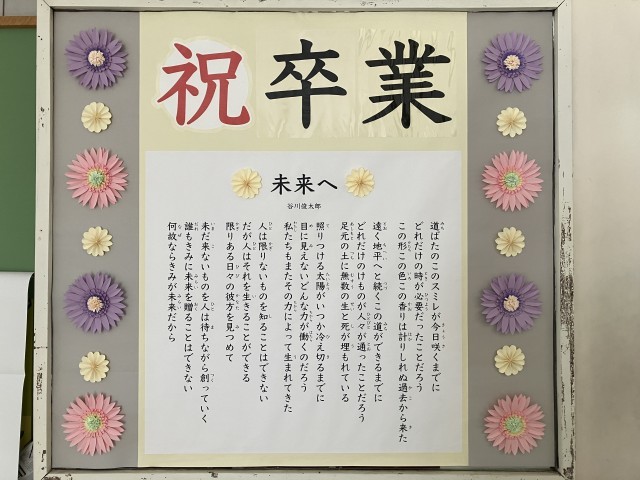 祝卒業
未来へ
谷川俊太郎
道ばたのこのスミレが今日咲くまでに
どれだけの時が必要だったことだろう
この形この色この香りは計りしれぬ過去から来た
遠く地平へと続くこの道ができるまでに
どれだけのけものが人々が通ったことだろう
足元の土に無数の生と死が埋もれている
照りつける太陽がいつか冷え切るまでに
目に見えないどんな力が働くのだろう
私たちもまたその力によって生まれてきた
人は限りないものを知ることはできない
だが人はそれを生きることができる
限りある日々の彼方を見つめて
未だ来ないものを人は待ちながら創っていく
誰もきみに未来を贈ることはできない
何故ならきみが未来だから